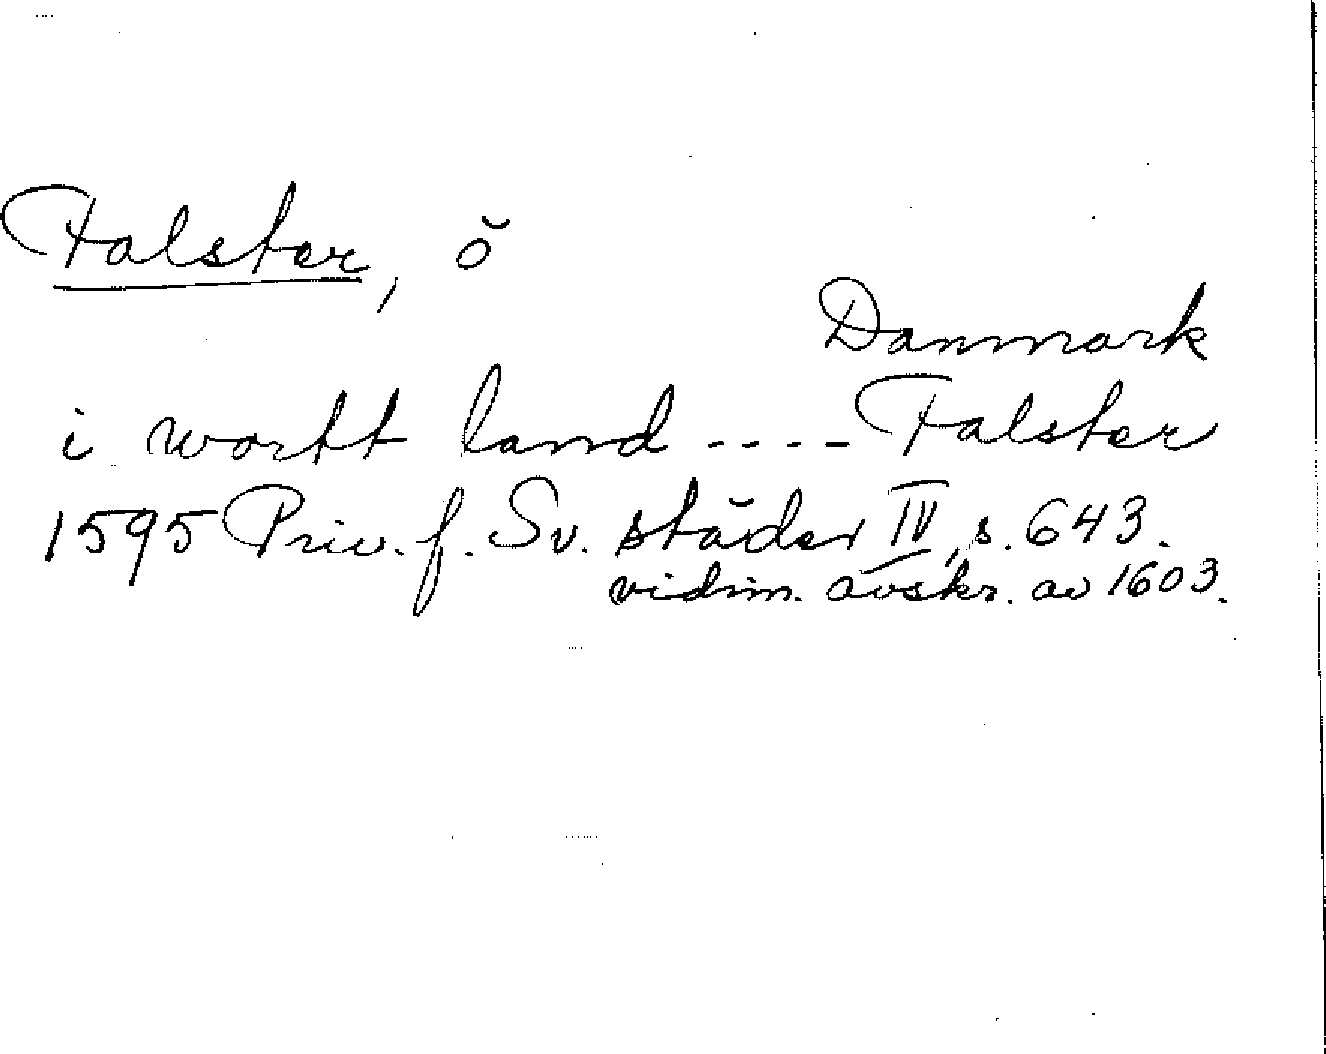 Falster, ö
Danmark
i wortt land ---- Falster
1595 Priv. f. Sv. städer IV, s. 643.
vidim. avskr. av 1603.